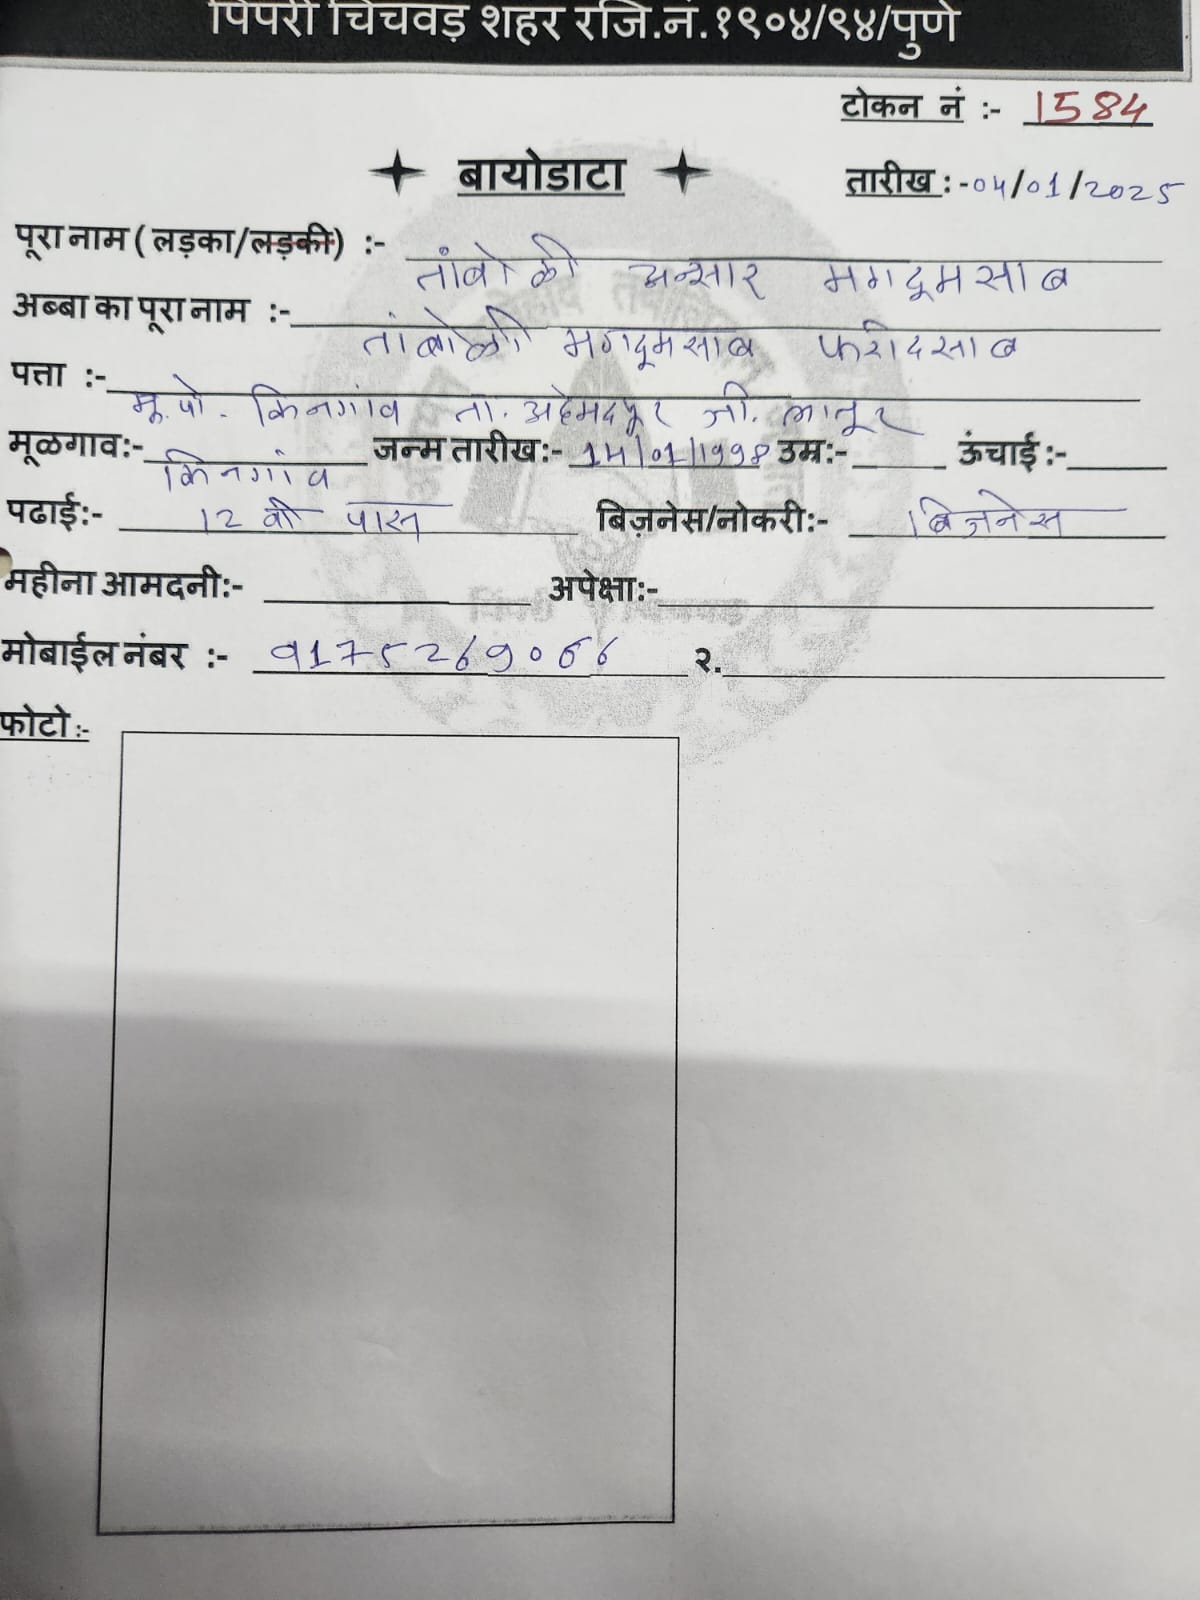 पिंपरी चिंचवड़ शहर रजि.नं.१९०४/९४/पुणे
टोकन नं :- 1584
बायोडाटा
तारीख :-04/01/2025
पूरा नाम ( लड़का/लड़की) :- तांबोळी अन्सार मगदूमसाब
अब्बा का पूरा नाम :- तांबोळी मगदूमसाब फरीदसाब
पत्ता :- मू.पो. किनगांव ता. अहेमदपूर जी. लातूर
मूळगाव:- किनगांव जन्म तारीख:- 14/01/1998 उम्र:- ऊंचाई :-
पढाई:- 12 वी पास बिज़नेस/नोकरी:- बिजनेस
महीना आमदनी:- अपेक्षा:-
मोबाईल नंबर :- 9175269066 २.
फोटो :-